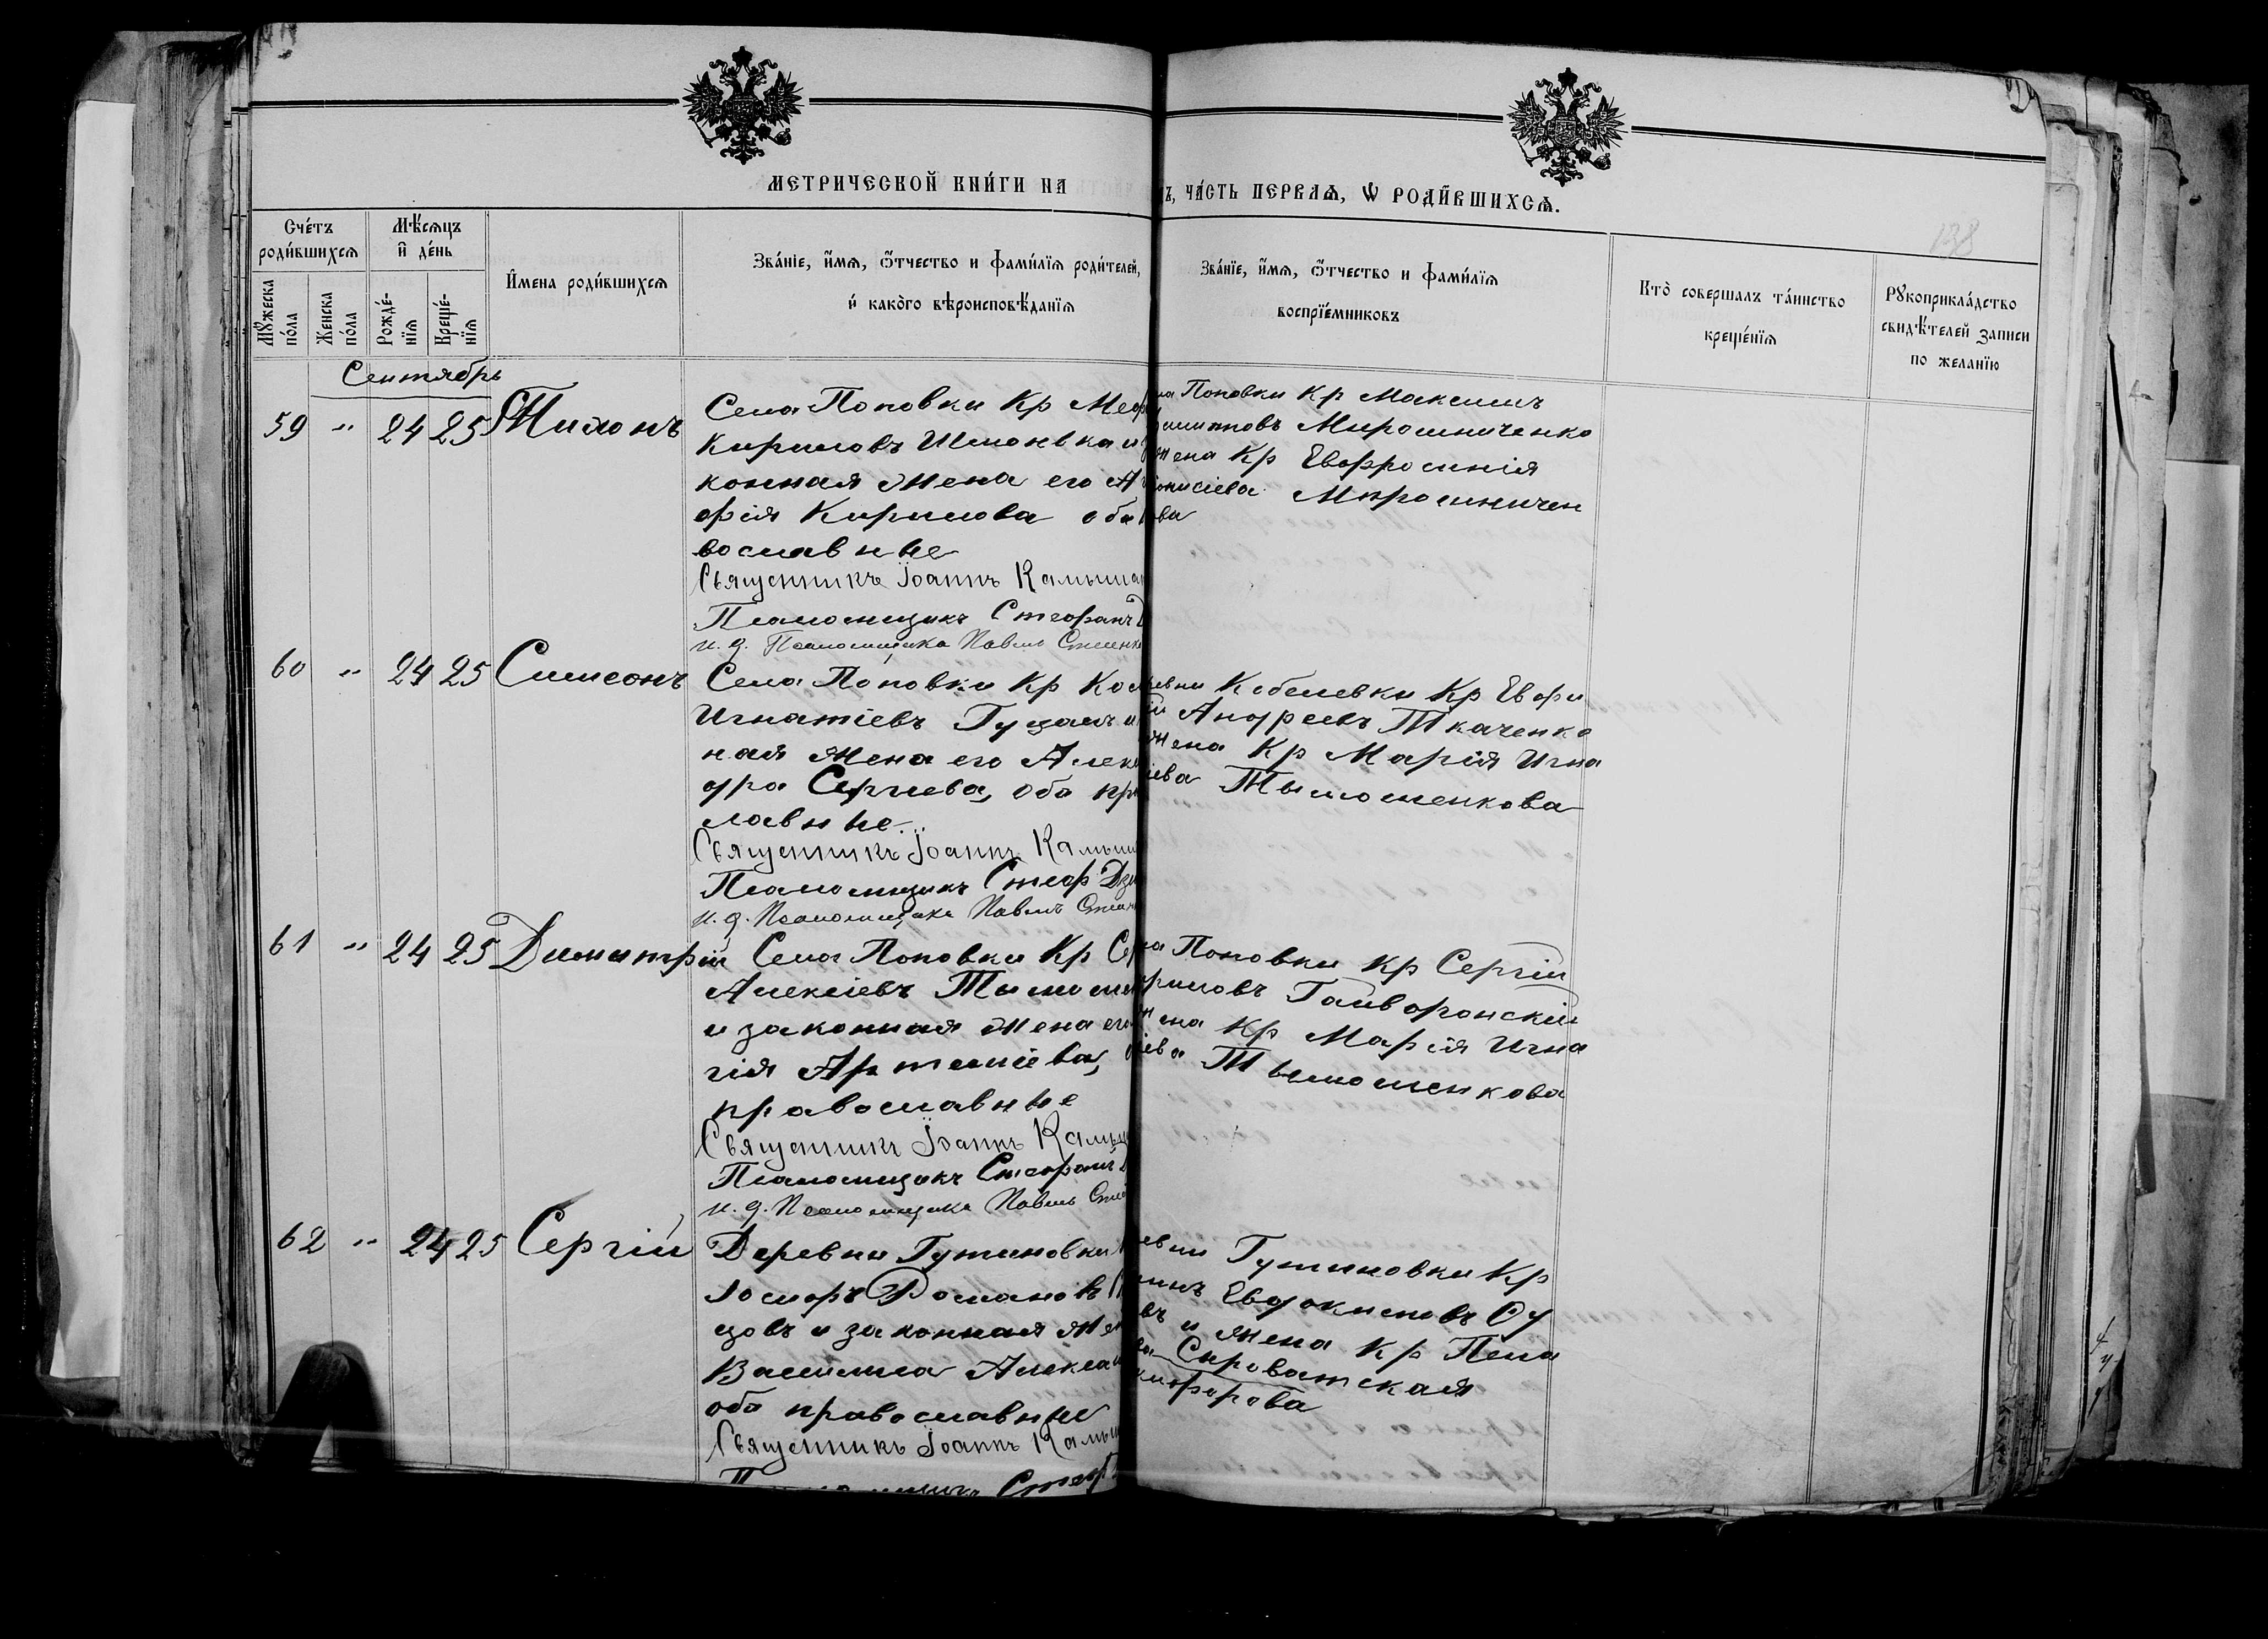 МЕТРИЧЕСКОЙ КНИ́ГИ НА
Ъ, ЧА́СТЬ ПЕРВАѦ, Ѡ РОДИ́ВШИХСѦ.
138
Сче́тъ роди́вшихсѧ
Мѣ́сѧцъ и҆ де́нь
И҆мена роди́вшихсѧ
Зва́нїе, и҆́мѧ, ѻ҆́тчество и фами́лїѧ роди́телей,
и҆ како́го вѣроисповѣ́данїѧ
Зва́нїе, и҆́мѧ, ѻ҆́тчество и фами́лїѧ
воспрїе́мниковъ
Кто̀ соверша́лъ та́инство
креще́нїѧ
Рꙋкоприкла́дство
свидѣ́телей записи
по жела́нїю
Мꙋ́жеска по́ла
Же́нска по́ла
Рожде́нїѧ
Креще́нїѧ
Сентябрь
59 " 24 25 Тихонъ
Села Поповки Кр
Кириловъ
конная жена его А
фія Кирилова оба
вославные
Священникъ Іоаннъ Камыша
Псаломщикъ Стефанъ
и. д. Псаломщика Павелъ
ла Поповки Кр Максимъ
Мирошниченко
жена Кр Евфросинія
онисіева Мирошничен
ова
60 " 24 25 Симеонъ
Села Поповки Кр Кос
Игнатіевъ Гуцалъ и
ная жена его Алек
дра Сергіева, оба пра
лавные.
Священникъ Іоаннъ Камыш
Псаломщикъ Стеф Дзю
и. д. Псаломщика Павелъ
ревни Кобелевки Кр Евфи
ій Андреевъ Ткаченко
жена Кр Марія Игна
іева Тымошенкова
61 " 24 25 Димитрій
Села Поповки Кр Се
Алексіевъ Тымоше
и законная жена его
гія Артеміева,
православные
Священникъ Іоаннъ Камы
Псаломщикъ Стефанъ
и. д. Псаломщика Павелъ
ла Поповки Кр Сергій
риловъ Гайворонскій
жена Кр Марія Игна
іева Тымошенкова
62 " 24 25 Сергій
Деревни Гутиновки
Іосифъ Романовъ
цовъ и законная же
Василиса Алекса
оба православные
Священникъ Іоаннъ Камы
Стеф
евни Гутиновки Кр
Евдокимовъ
въ и жена Кр Пела
Сыроватская
кифорова